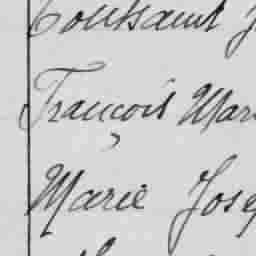 Toussaint J
François Mar
Marie Jose